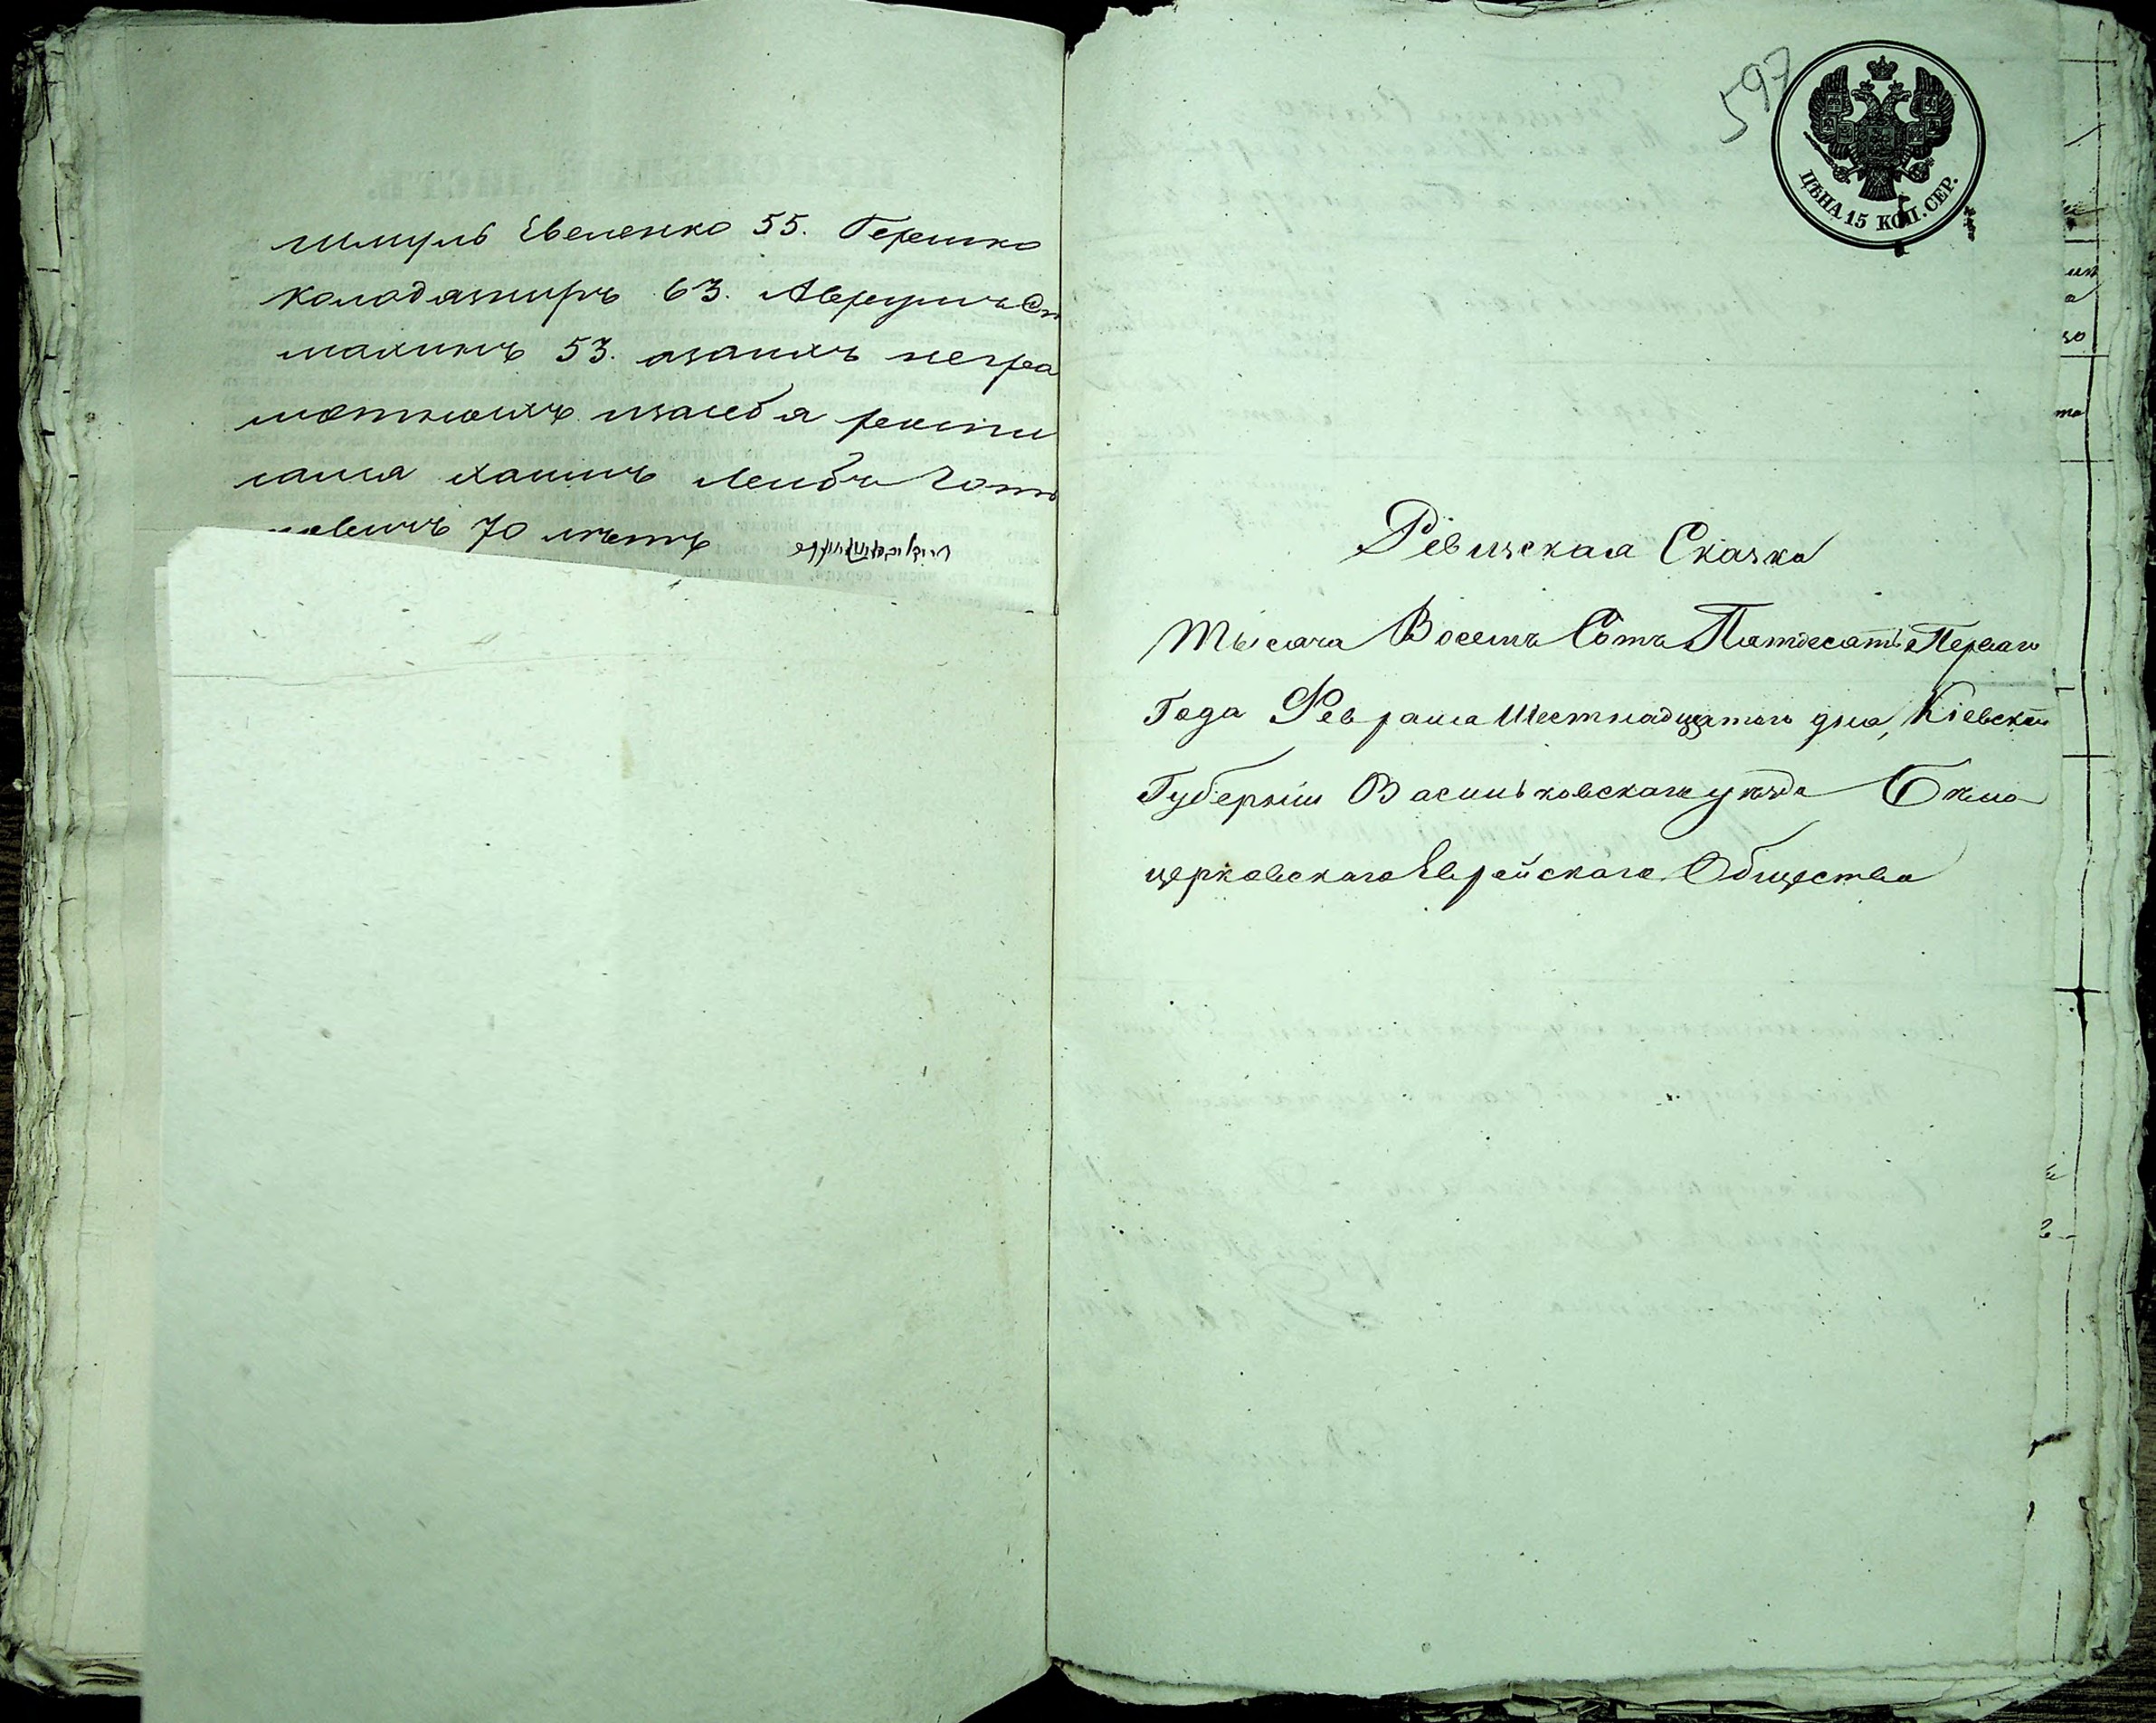 шмуль Евеленко 55. Гершко
колодязниръ 63. Аврумъ
махинъ 53. азаихъ негра
мотныхъ изасебя распи
лался хаимъ Лейба
овичъ 70 лѣтъ
597
ЦѢНА 15 КОП. СЕР.
Ревизская Сказка
Тысяча Восемъ Сотъ Пятдесятъ Перваго
Года Февраля Шестнадцатого дня, Кіевской
Губерніи Васильковскаго уѣзда Бѣло
церковскаго Еврейскаго Общества